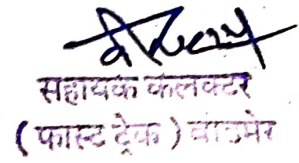 सहायक कलक्टर
( फास्ट ट्रेक ) बाडमेर